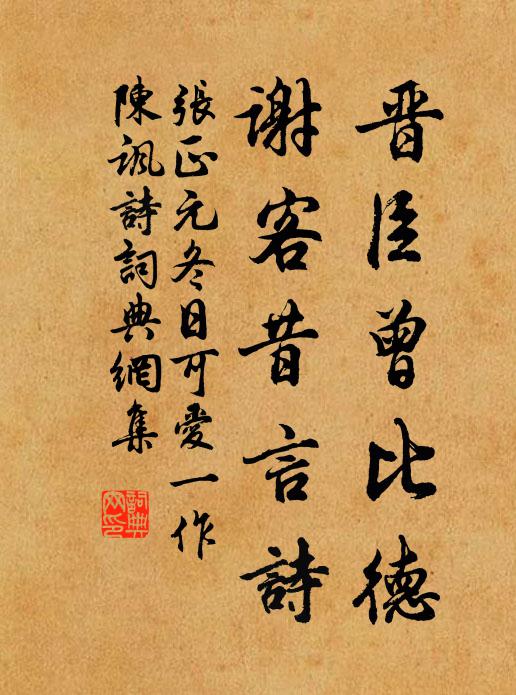 晋臣曾比德
謝客昔言詩
張正元冬日可愛一作
陳諷詩詞典網集
詞典網印